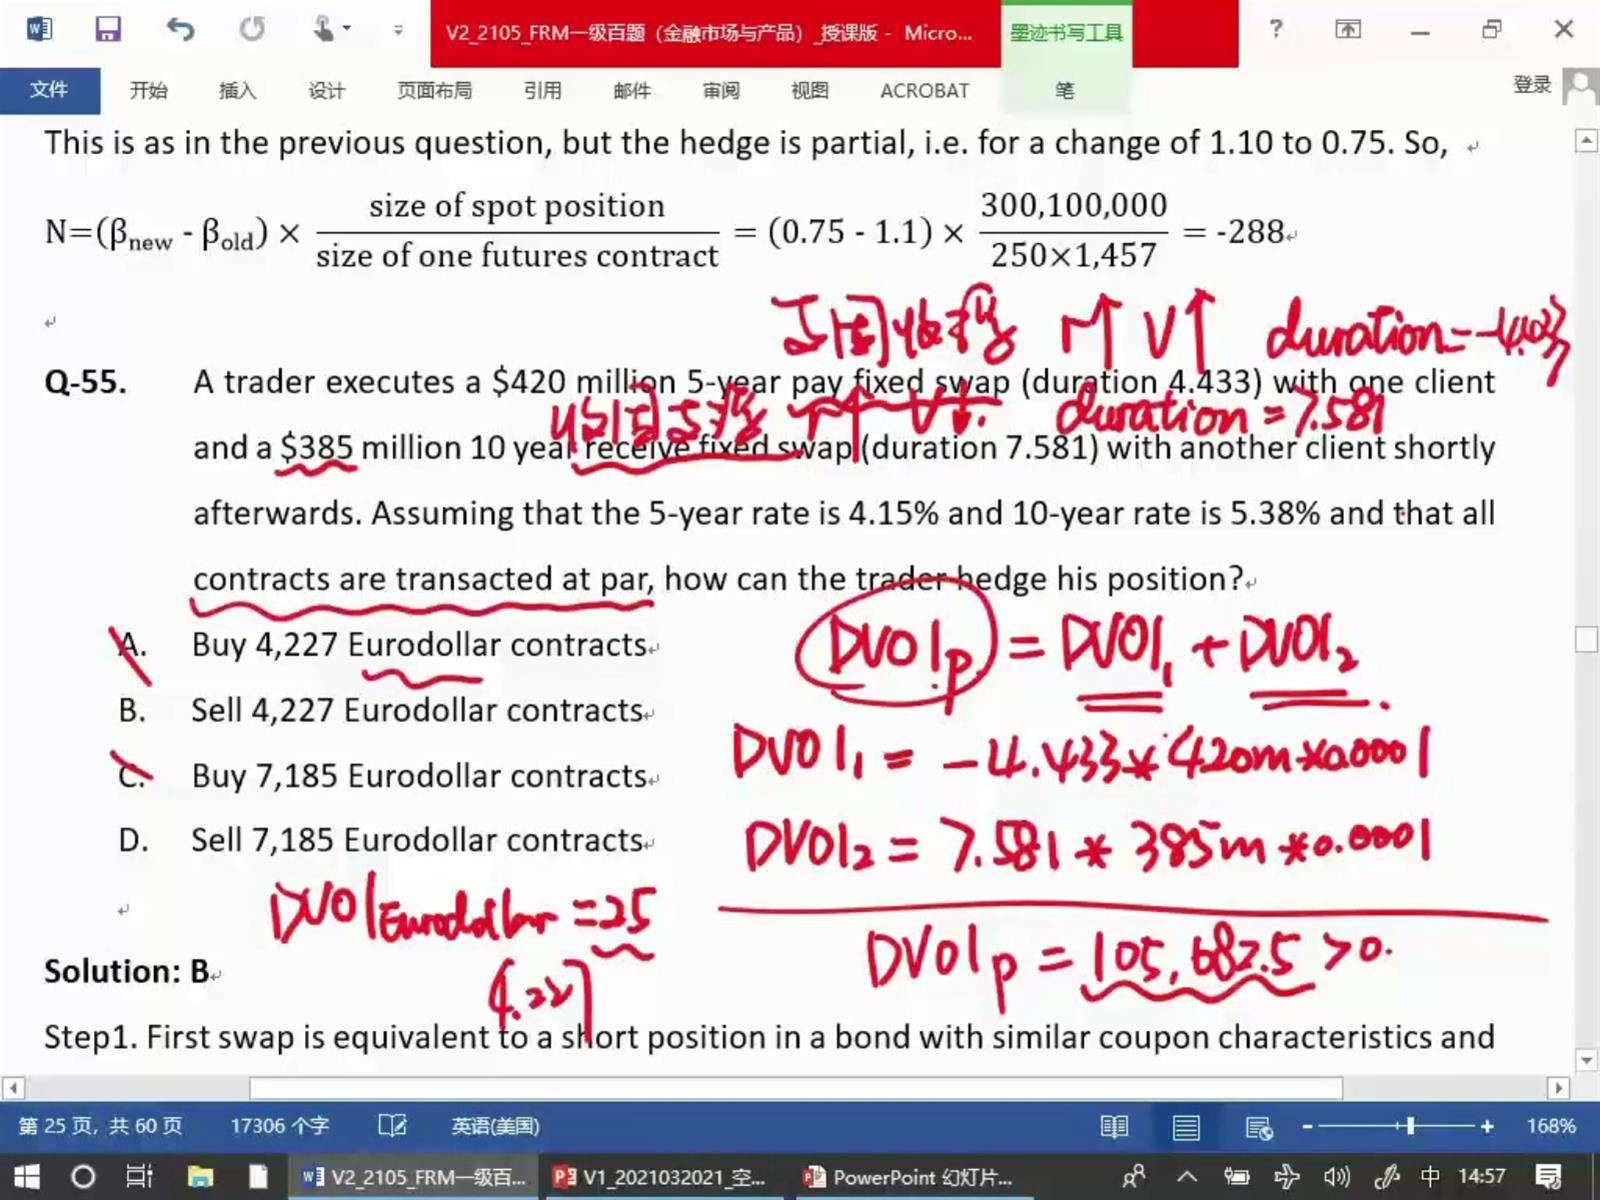 V2_2105_FRM一级百题（金融市场与产品）_授课版 - Micro...
墨迹书写工具
?
文件 开始 插入 设计 页面布局 引用 邮件 审阅 视图 ACROBAT 笔 登录
This is as in the previous question, but the hedge is partial, i.e. for a change of 1.10 to 0.75. So,
N=(βnew - βold) × size of spot position / size of one futures contract = (0.75 - 1.1) × 300,100,000 / 250×1,457 = -288
r↑ V↑ duration=-4.433
Q-55. A trader executes a $420 million 5-year pay fixed swap (duration 4.433) with one client
收固支浮 r↑ V↓. duration=7.581
and a $385 million 10 year receive fixed swap (duration 7.581) with another client shortly
afterwards. Assuming that the 5-year rate is 4.15% and 10-year rate is 5.38% and that all
contracts are transacted at par, how can the trader hedge his position?
A. Buy 4,227 Eurodollar contracts
DV01p = DV01₁ + DV01₂.
B. Sell 4,227 Eurodollar contracts
DV01₁ = -4.433*420m*0.0001
C. Buy 7,185 Eurodollar contracts
D. Sell 7,185 Eurodollar contracts
DV01₂ = 7.581*385m*0.0001
DV01Eurodollar = 25
DV01p = 105,682.5 >0.
Solution: B
4.227
Step1. First swap is equivalent to a short position in a bond with similar coupon characteristics and
第 25 页，共 60 页 17306 个字 英语(美国) 168%
V2_2105_FRM一级百... V1_2021032021_空... PowerPoint 幻灯片... 中 14:57